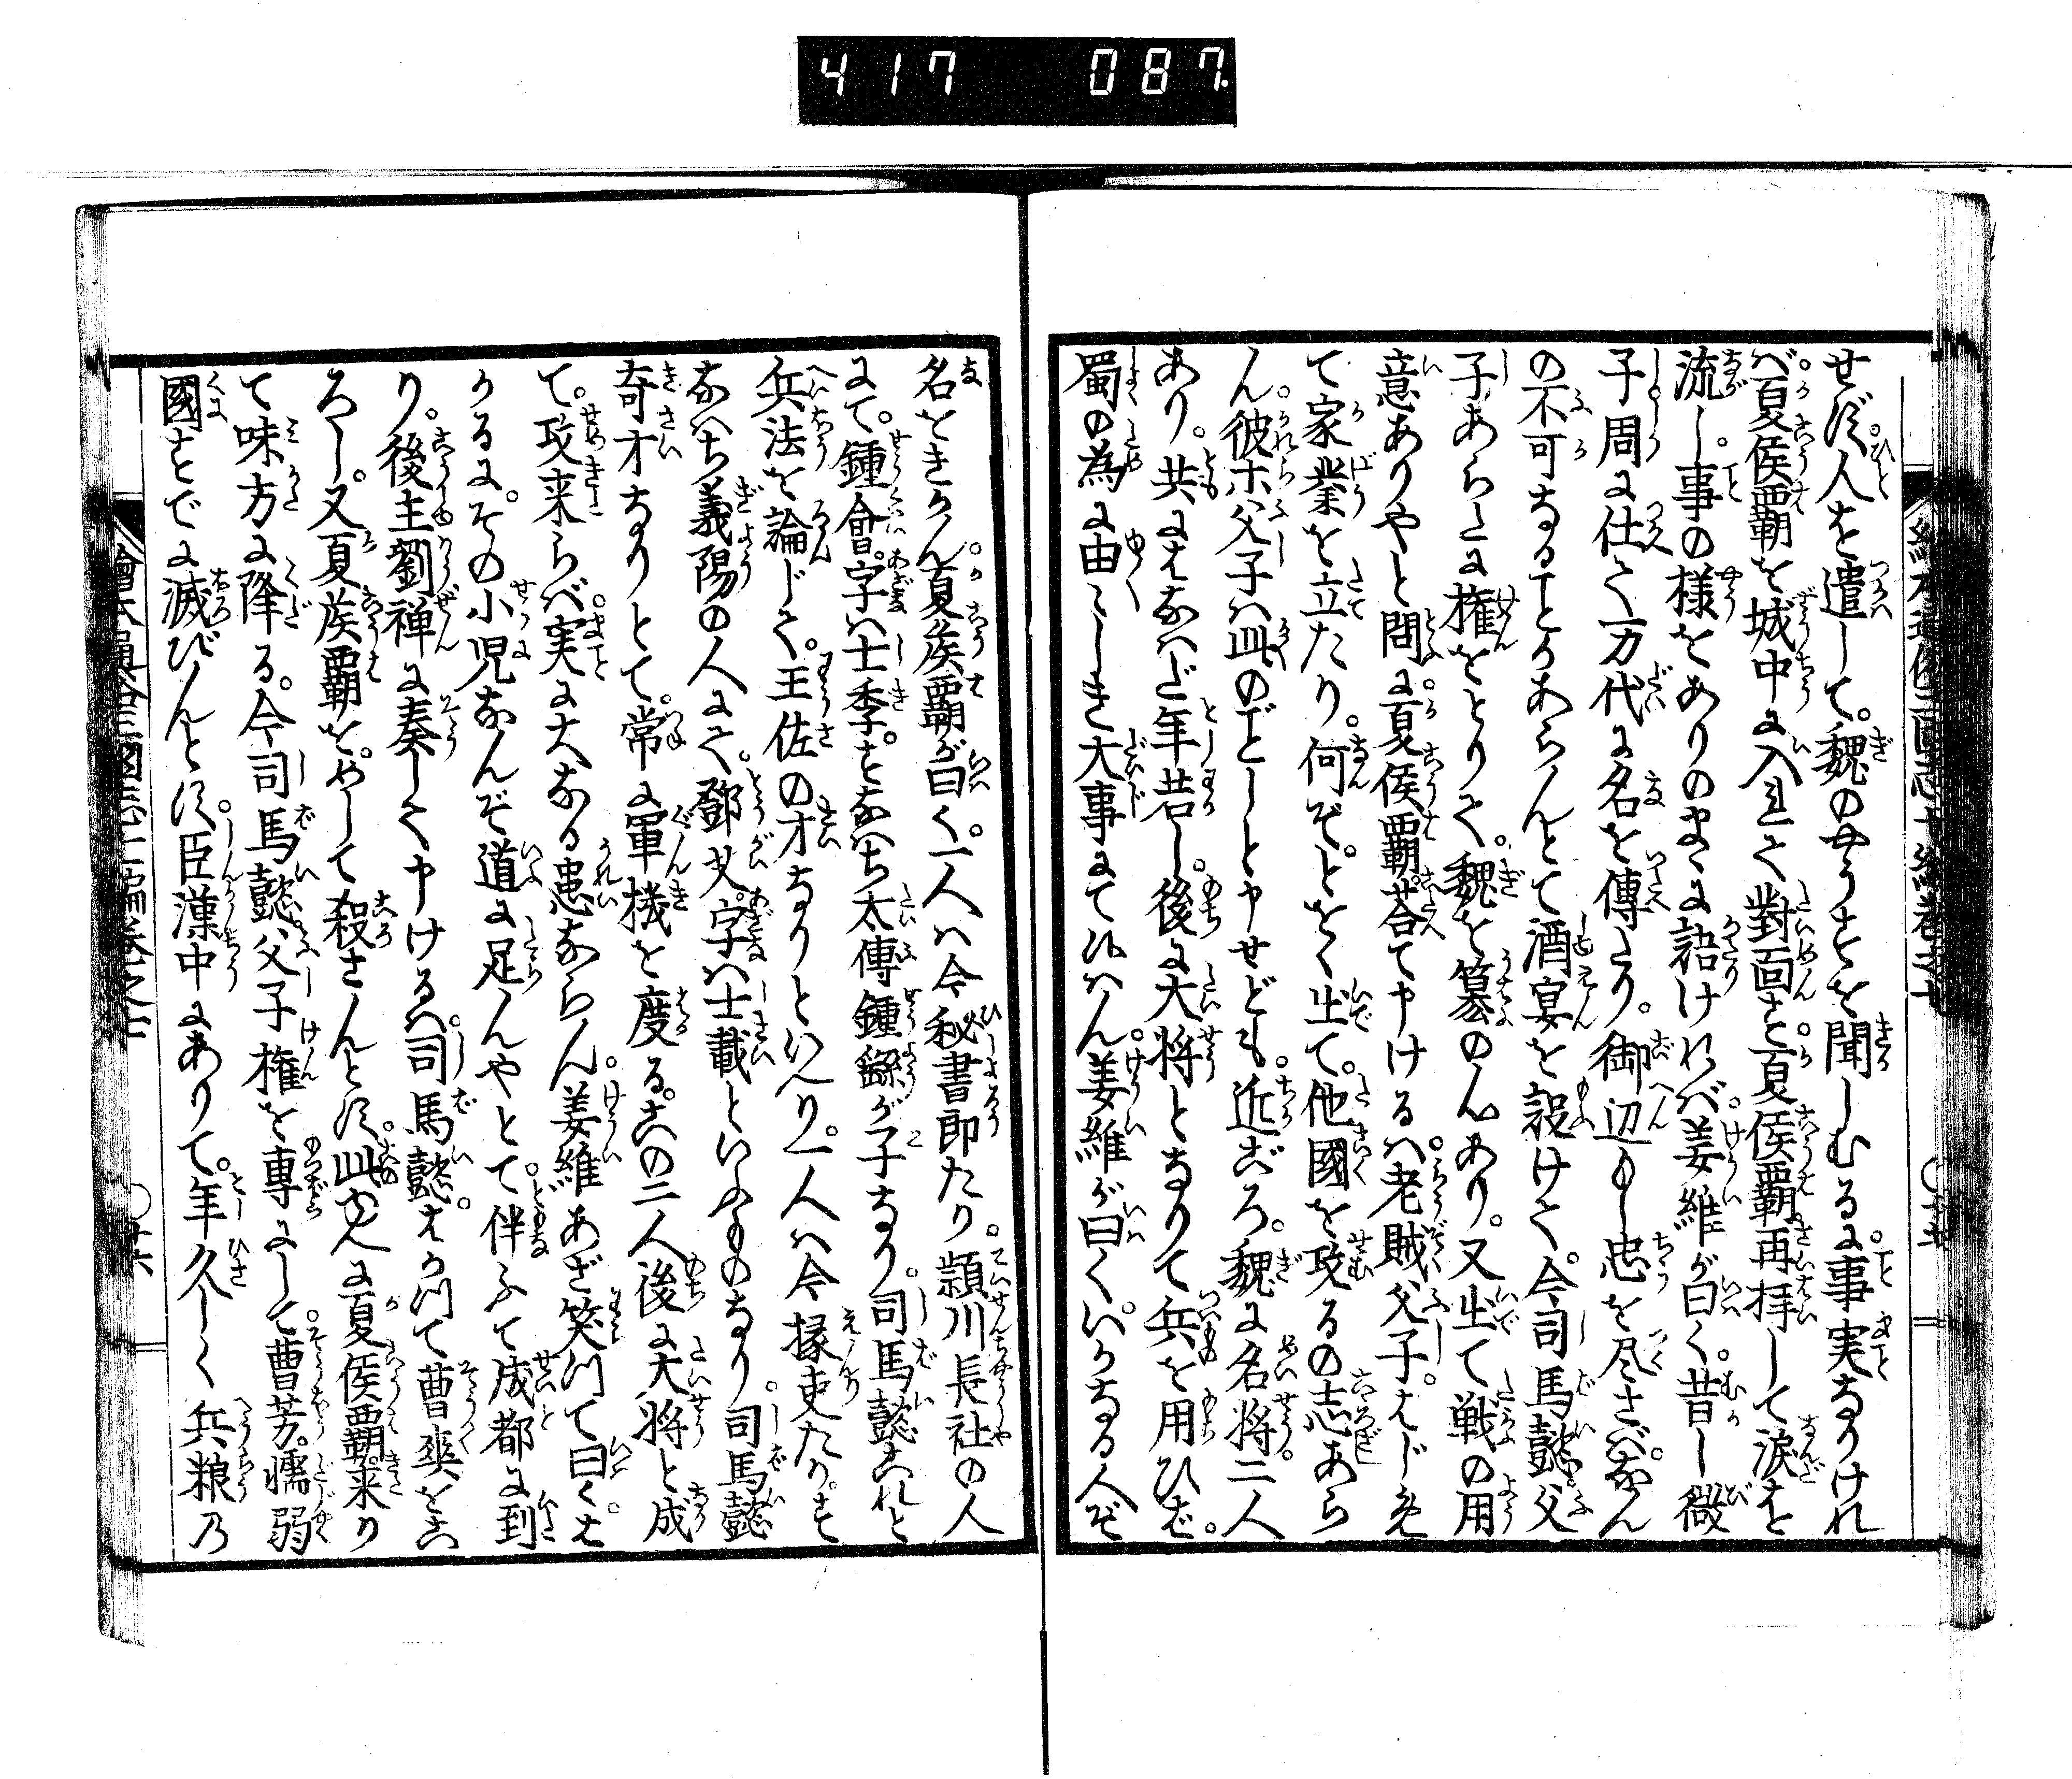 417 087.
せず。人を遣して。魏のやうすを聞しむるに。事実なりけれ
バ。夏侯覇を城中に入れて對面す。夏侯覇再拝して涙を
流し。事の様をありのまゝに語けれバ。姜維が曰く。昔し微
子周に仕て万代に名を傳たり。御辺もし忠を尽さバ。なん
の不可なることかあらんとて酒宴を設けて。今司馬懿。父
子あらたに権をとりて。魏を簒のんあり。又出て戦の用
意ありやと問に。夏侯覇荅て申けるハ。老賊父子。はじめ
て家業を立たり。何ぞ。とをく出て。他國を攻るの志あら
ん。彼ホ父子ハ此のごとしと申せども。近ごろ。魏に名将二人
あり。共にえなハだ年若し。後に大将となりて兵を用ひバ。
蜀の為に由〻しき大事にて候ハん。姜維が曰く。いかなる人ぞ
名をきかん。夏侯覇が曰く。一人ハ今秘書郎たり。頴川長社の人
にて。鍾會。字ハ士季。すなハち太傅鍾繇が子なり。司馬懿これと
兵法を論じて。王佐の才なりといへり。一人ハ今掾吏たり。す
なハち義陽の人にて。鄧艾。字ハ士載といふものなり。司馬懿
奇才なりとて。常に軍機を度る。此の二人後に大将と成
て。攻来らバ。実に大なる患ならん。姜維あざ笑つて曰く。は
かるに。その小児なんぞ道に足んやとて。伴ふて成都に到
り。後主劉禅に奏して申けるハ。司馬懿。はかつて曹爽をこ
ろし。又夏侯覇を。めして殺さんとす。此ゆへに夏侯覇来り
て味方に降る。今司馬懿父子権を専にして。曹芳。懦弱
國すでに滅びんとす。臣漢中にありて。年久しく兵粮乃